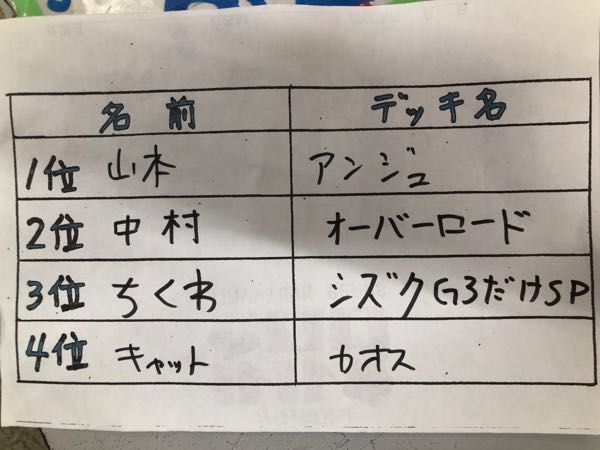 名前 デッキ名
1位 山本 アンジュ
2位 中村 オーバーロード
3位 ちくわ シズクG3だけSP
4位 キャット カオス